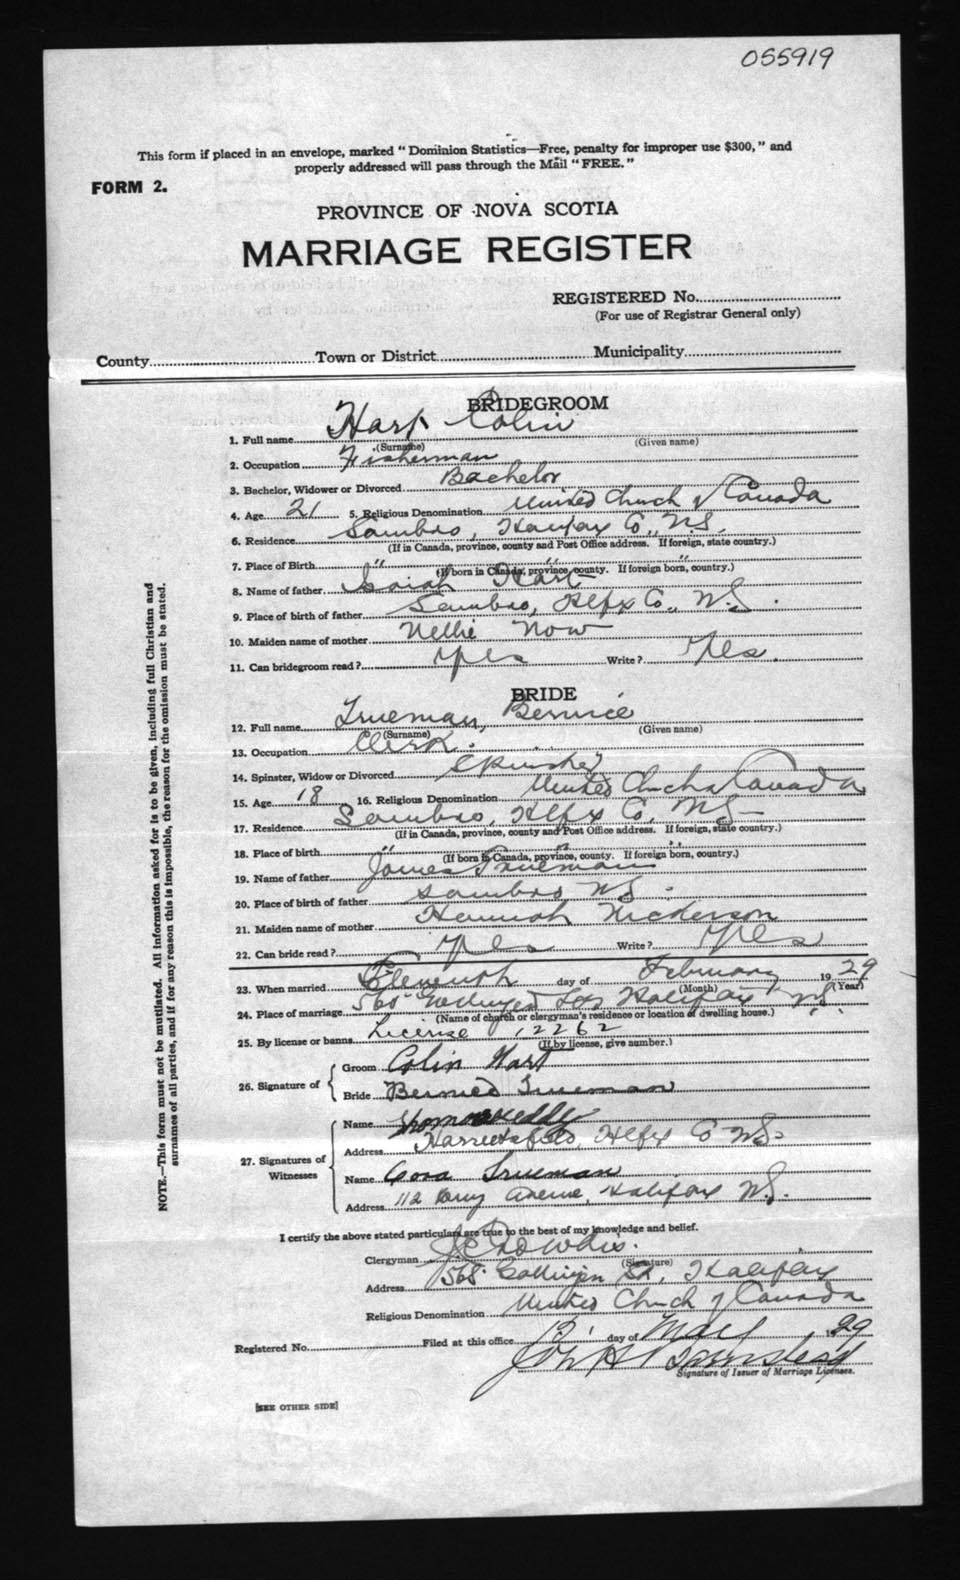 055919
This form if placed in an envelope, marked "Dominion Statistics—Free, penalty for improper use $300," and
properly addressed will pass through the Mail "FREE."
FORM 2.
PROVINCE OF NOVA SCOTIA
MARRIAGE REGISTER
REGISTERED No.
(For use of Registrar General only)
County Town or District Municipality
BRIDEGROOM
1. Full name Hart Colin
(Surname) (Given name)
2. Occupation Fisherman
3. Bachelor, Widower or Divorced Bachelor
4. Age 21 5. Religious Denomination United Church of Canada
6. Residence Sambro, Halifax Co., N.S.
(If in Canada, province, county and Post Office address. If foreign, state country.)
7. Place of Birth " " "
(If born in Canada, province, county. If foreign born, country.)
8. Name of father Isaiah Hart
9. Place of birth of father Sambro, Hlfx Co., N.S.
10. Maiden name of mother Nellie Now
11. Can bridegroom read? Yes Write? Yes.
BRIDE
12. Full name Trueman, Bernice
(Surname) (Given name)
13. Occupation Clerk.
14. Spinster, Widow or Divorced Spinster
15. Age 18 16. Religious Denomination United Church Canada
17. Residence Sambro, Hlfx Co, N.S.
(If in Canada, province, county and Post Office address. If foreign, state country.)
18. Place of birth " " "
(If born in Canada, province, county. If foreign born, country.)
19. Name of father James Trueman
20. Place of birth of father Sambro N.S.
21. Maiden name of mother Hannah Nickerson
22. Can bride read? Yes Write? Yes
23. When married Eleventh day of February 1929
(Month) (Year)
24. Place of marriage 568 St Halifax N.S.
(Name of church or clergyman's residence or location of dwelling house.)
25. By license or banns License 12262
(If by license, give number.)
26. Signature of Groom Colin Hart
Bride Bernice Trueman
27. Signatures of Witnesses
Name
Address Harrietsfield, Hlfx Co N.S.
Name Cora Trueman
Address 112 Avenue, Halifax N.S.
I certify the above stated particulars are true to the best of my knowledge and belief.
Clergyman
(Signature)
Address 568 St., Halifax
Religious Denomination United Church of Canada
Registered No. Filed at this office day of 1929
Signature of Issuer of Marriage Licenses.
[SEE OTHER SIDE]
NOTE.—This form must not be mutilated. All information asked for is to be given, including full Christian and
surnames of all parties, and if for any reason this is impossible, the reason for the omission must be stated.